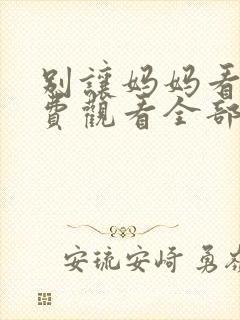 别讓妈妈看
費觀看全部
安琉安崎 勇